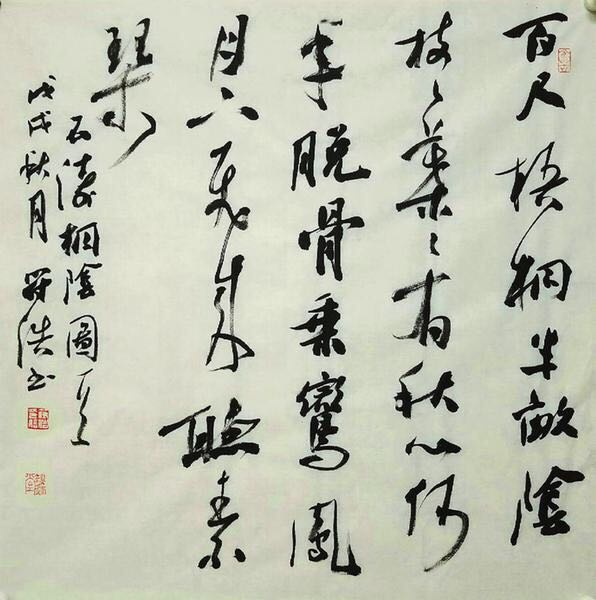 百尺梧桐半畝陰
枝々葉々有秋心何
年脫骨乘鸞鳳
月下飛來聽素
琴
石濤桐陰圖
戊戌秋月浩书